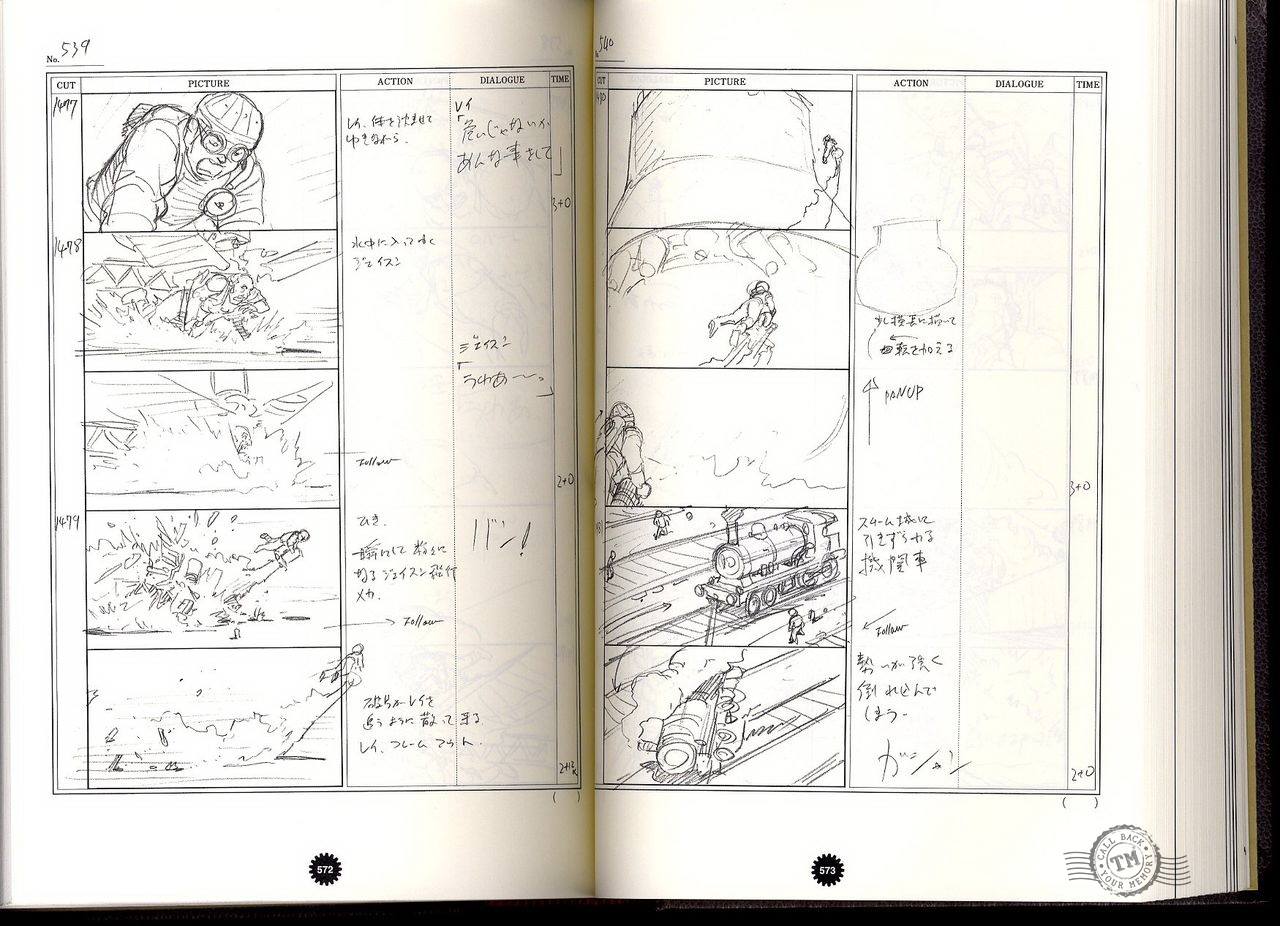 No. 539
CUT PICTURE ACTION DIALOGUE TIME
1477
レイ、体を沈ませて
ゆきながら、
レイ
「危いじゃないか
あんな事をして」
3+0
1478
水中に入ってゆく
ジェイスン
ジェイスン
「うわあ〜〜。」
Follow
2+0
1479
ひき、
一瞬にして粉々に
なるジェイスン飛行
メカ。
バン!
Follow
破片がレイを
追うように散って来る
レイ、フレームアウト、
2+12K
( )
572
540
CUT PICTURE ACTION DIALOGUE TIME
回転を加える
PAN UP
3+0
スチーム城に
引きずられる
機関車
Follow
勢いが強く
倒れ込んで
しまう。
2+0
( )
573
CALL BACK
TM
YOUR MEMORY